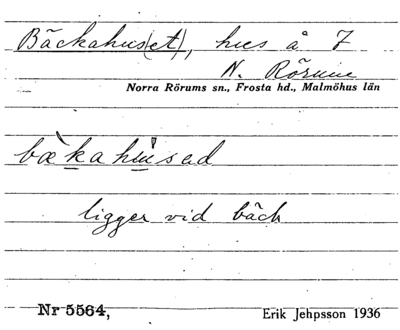 Bäckahus(et), hus å 7
N. Rörum
Norra Rörums sn., Frosta hd., Malmöhus län
bækahusad
ligger vid bäck
Nr 5564,
Erik Jehpsson 1936